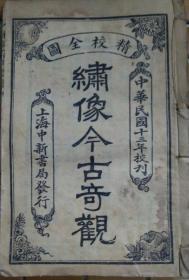 圖全校精
中華民國十三年校刊
繡像今古奇觀
上海中新書局發行